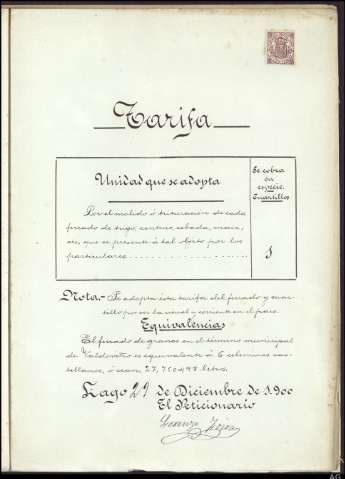 Tarifa
Unidad que se adopta
Se cobra
en
especie.
Cuartillos
Por el molido ó trituración de cada
ferrado de trigo, centeno, cebada, maiz,
etc, que se presente á tal objeto por los
particulares
1
Nota.- Se adopta esta tarifa del ferrado y cuar-
tillo por ser la usual y corriente en el pais.
Equivalencia
El ferrado de granos en el término municipal
de Valdoviño es equivalente á 6 celemines cas-
tellanos, ó sean 27,750
Lago 29 de Diciembre de 1.900
El Peticionario